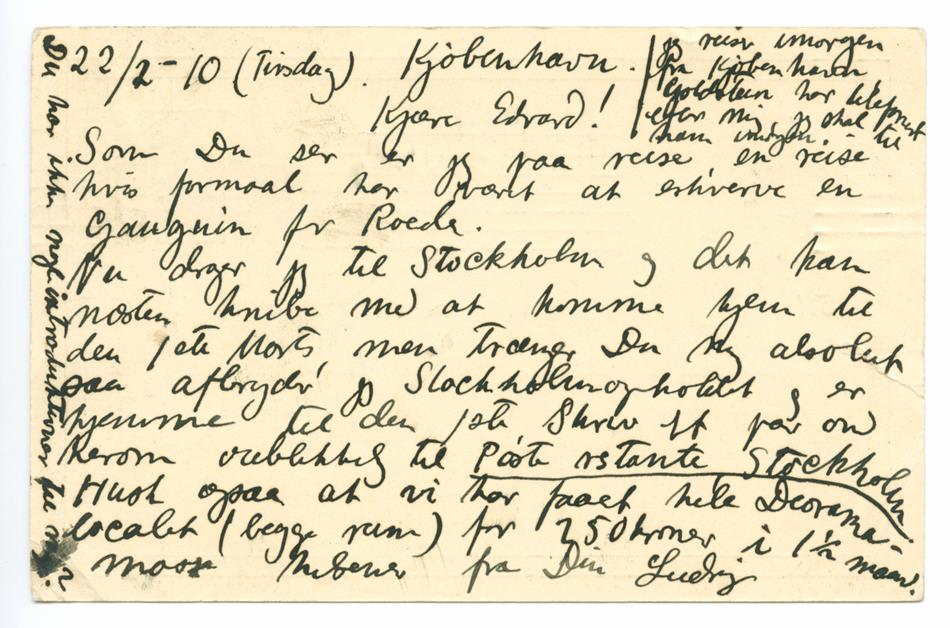 22/2-10 (Tirsdag). Kjøbenhavn.
Kjære Edvard!
jeg reiser imorgen
fra Kjøbenhavn
Goldstein har telefonert
efter mig jeg skal til
ham imorgen.
Som Du ser er jeg paa reise en reise
hvis formaal har været at erhverve en
Gauguin for Roede.
Nu drager jeg til Stockholm og det kan
næsten knibe med at komme hjem til
den 1ste Marts, men trænger Du mig absolut
saa afbryder jeg Stockholmopholdet og er
hjemme til den 1ste Skriv et par ord
herom øieblikkelig til Poste restante Stockholm.
Husk ogsaa at vi har faaet hele Diorama-
localet (begge rum) for 750 kroner i 1½ maan.
masse hilsener fra Din Ludvig
Du har ikke nogle introduktioner til mig?